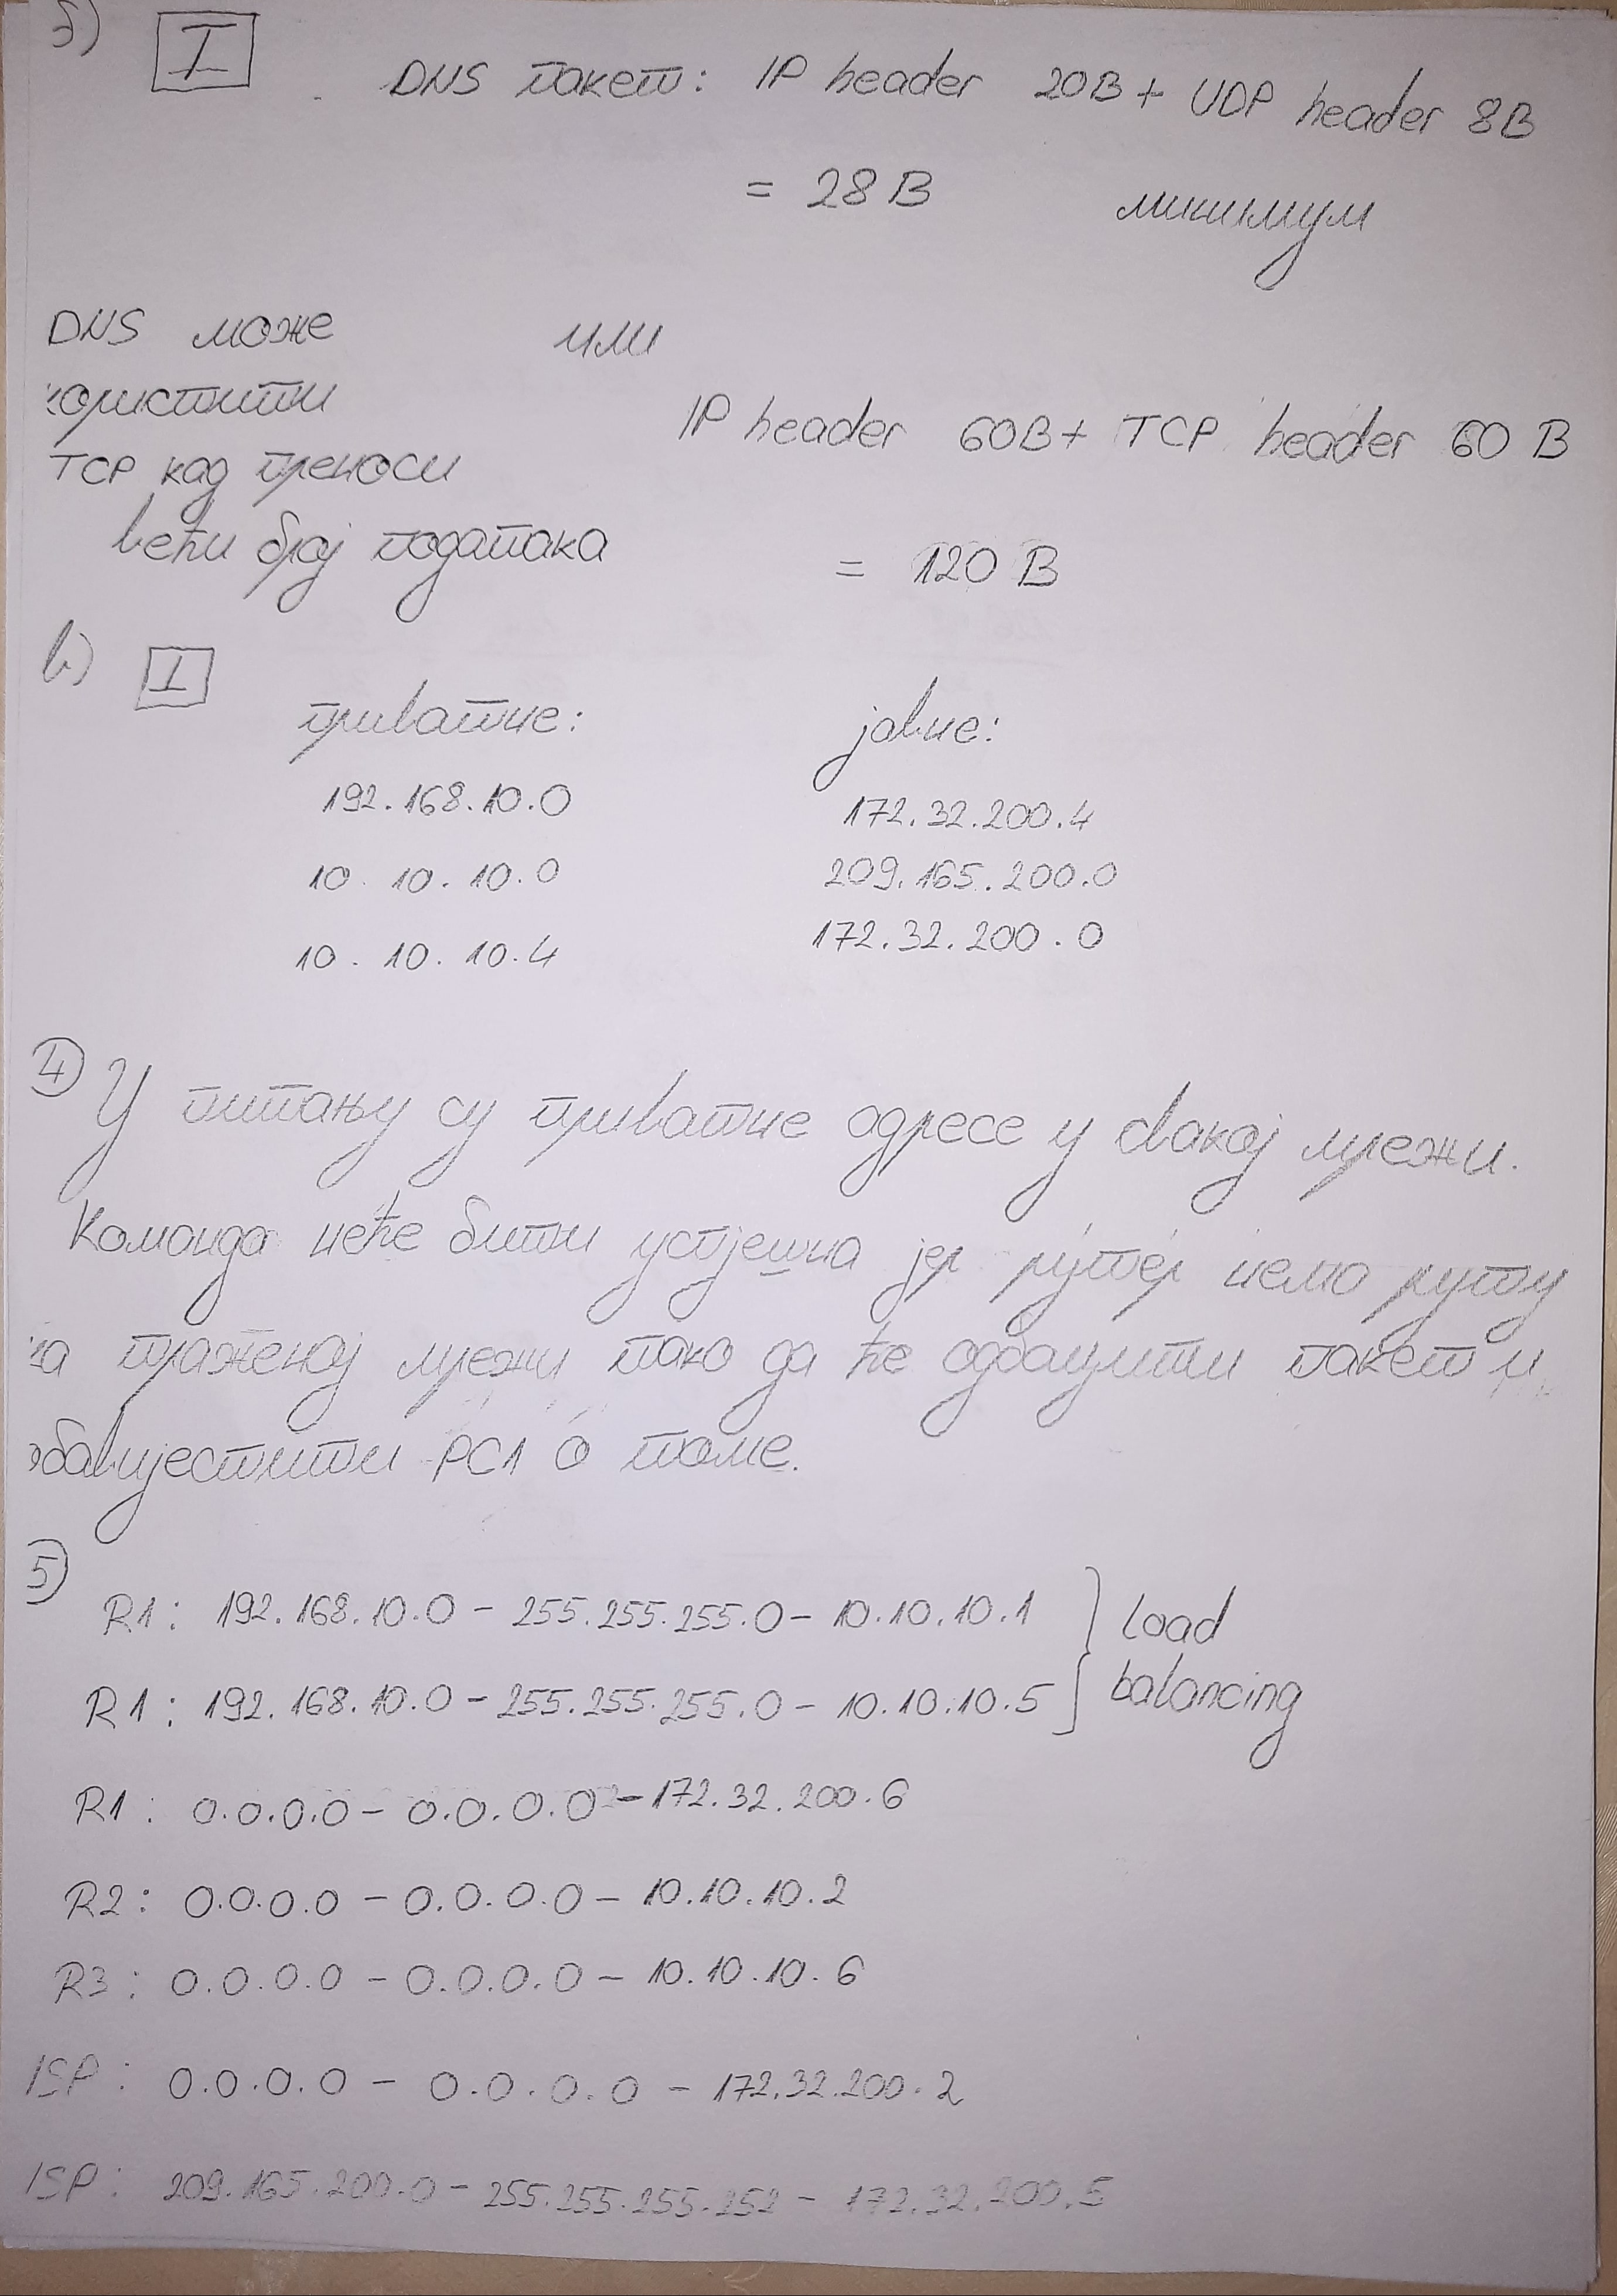 б) I
DNS пакет: IP header 20B + UDP header 8B
= 28 B минимум
DNS може или
користити
IP header 60B + TCP header 60 B
TCP кад преноси
већи број података
= 120 B
в) I
приватне: јавне:
192.168.10.0 172.32.200.4
10.10.10.0 209.165.200.0
10.10.10.4 172.32.200.0
4) У питању су приватне адресе у свакој мрежи.
Команда неће бити успјешна јер рутер нема руту
ка траженој мрежи тако да ће одбацити пакет и
обавијестити PC1 о томе.
5)
R1: 192.168.10.0 - 255.255.255.0 - 10.10.10.1 } Load
R1: 192.168.10.0 - 255.255.255.0 - 10.10.10.5 balancing
R1: 0.0.0.0 - 0.0.0.0 - 172.32.200.6
R2: 0.0.0.0 - 0.0.0.0 - 10.10.10.2
R3: 0.0.0.0 - 0.0.0.0 - 10.10.10.6
ISP: 0.0.0.0 - 0.0.0.0 - 172.32.200.2
ISP: 209.165.200.0 - 255.255.255.252 - 172.32.200.5